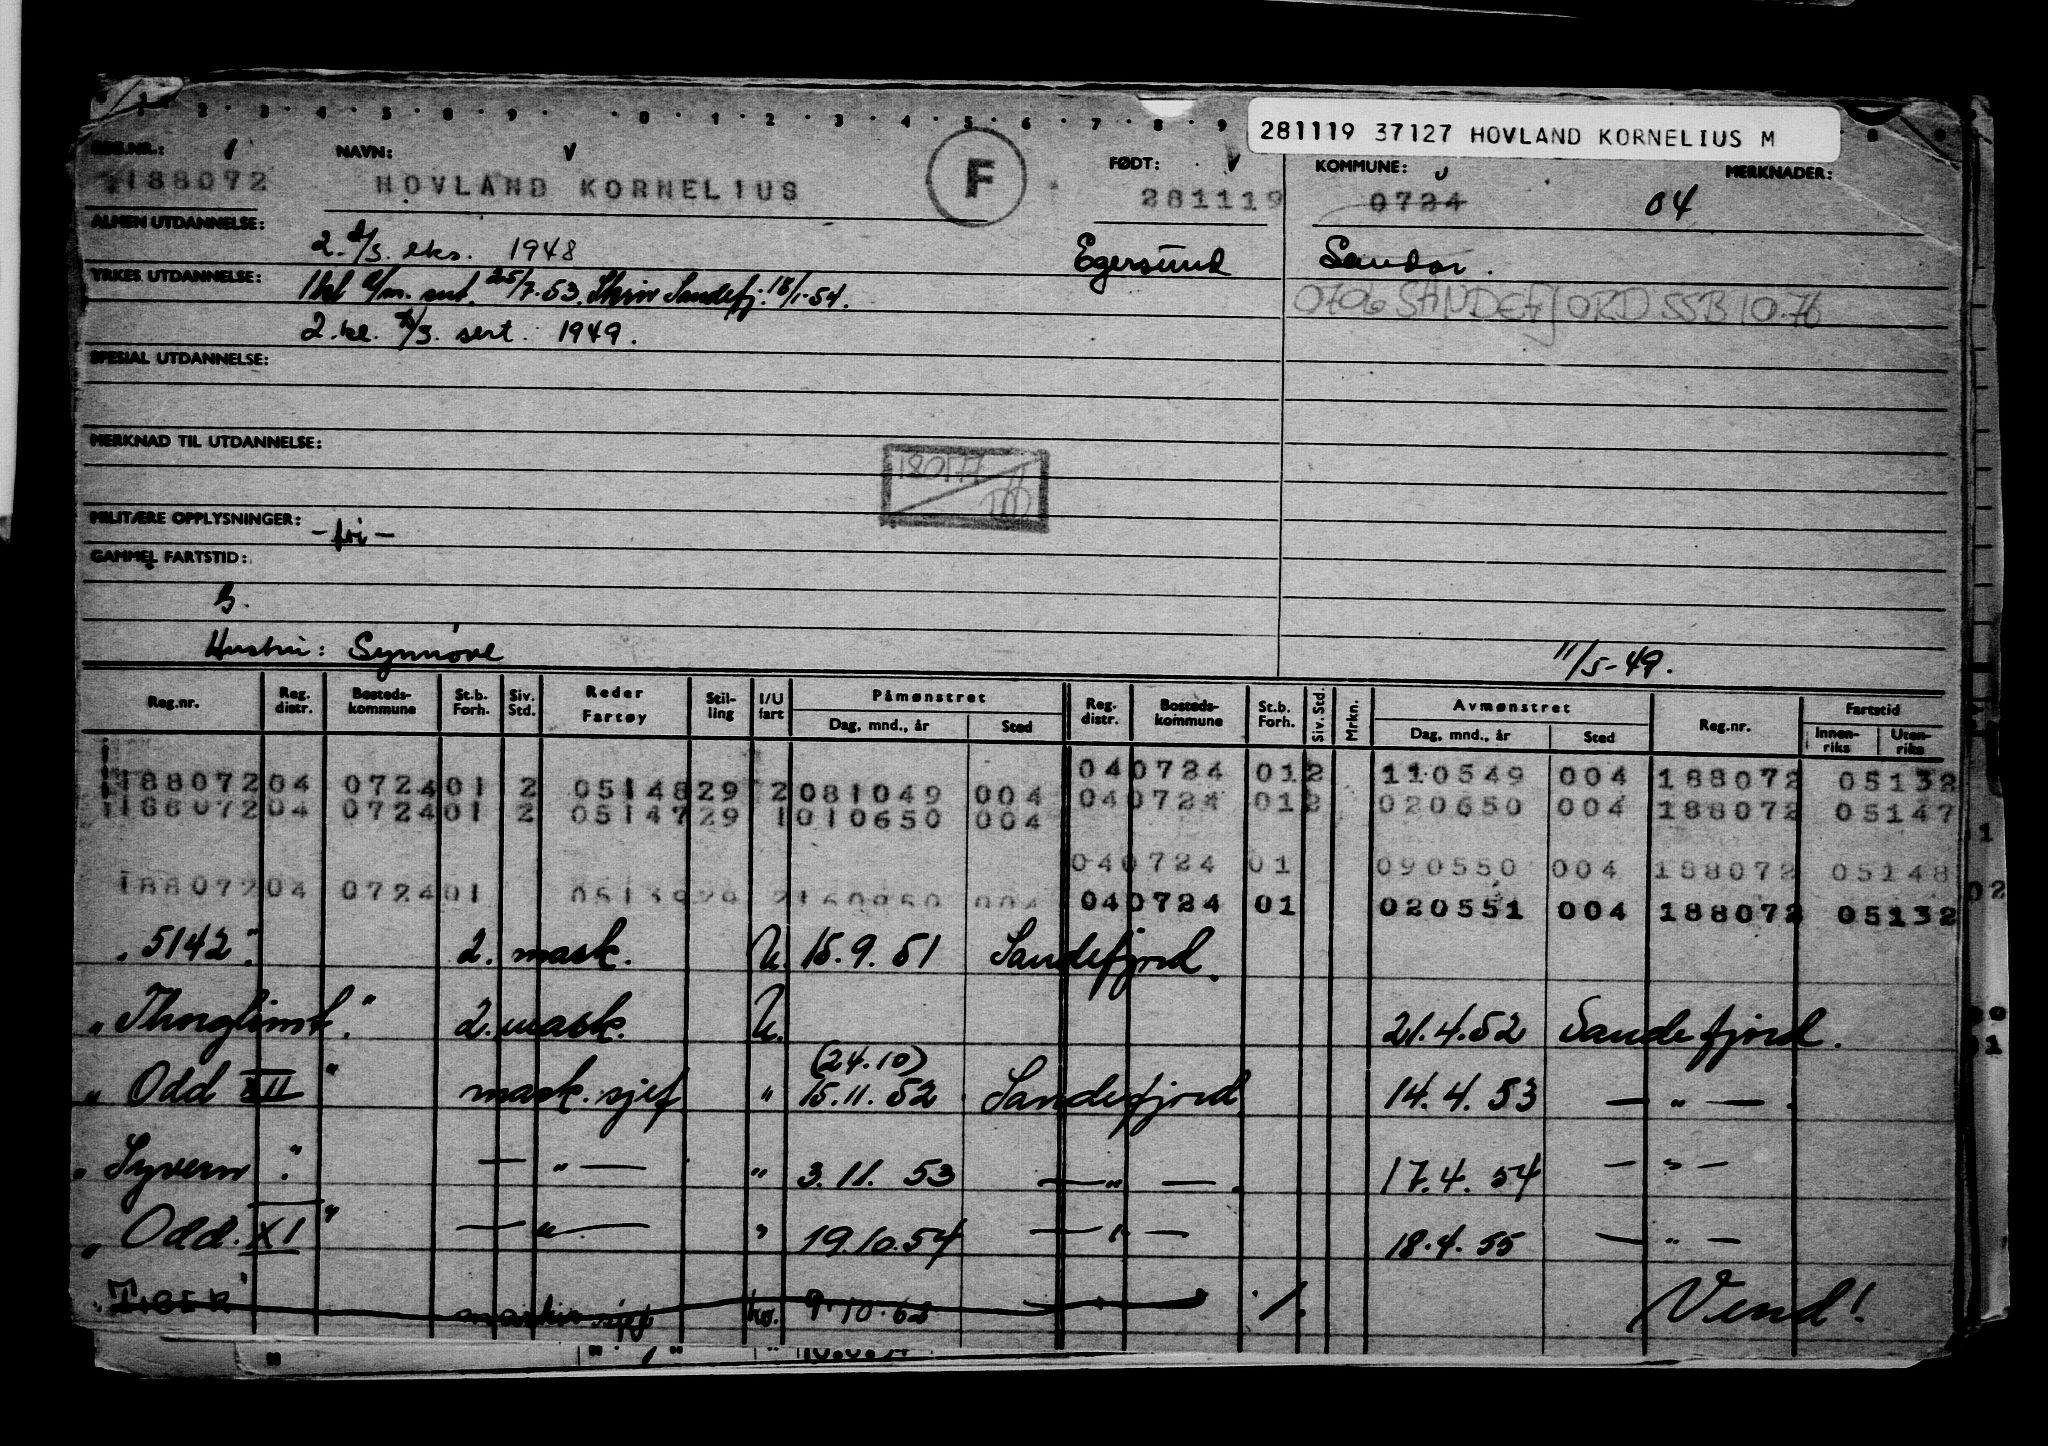 281119 37127 HOVLAND KORNELIUS M
REG.NR.: NAVN: FØDT: KOMMUNE: MERKNADER:
188072 HOVLAND KORNELIUS F 281119 0724 04
ALMEN UTDANNELSE: 2. eks. 1948 Egersund Sandar.
YRKES UTDANNELSE: 1 kl sert. 25/7-53. Sandefj. 18/1-54.
0706 SANDEFJORD SSB 10.76
2. kl. sert. 1949.
SPESIAL UTDANNELSE:
MERKNAD TIL UTDANNELSE:
MILITÆRE OPPLYSNINGER: -fri-
GAMMEL FARTSTID:
Hustru: Synnøve 11/5-49.
Reg.nr. Reg. distr. Bosteds-kommune St.b. Forh. Siv. Std. Reder Fartøy Stil-ling I/U fart Påmønstret Dag, mnd., år Sted Reg. distr. Bosteds-kommune St.b. Forh. Siv. Std. Mrkn. Avmønstret Dag, mnd., år Sted Reg.nr. Fartstid Innen-riks Uten-riks
188072 04 0724 01 2 05148 29 2 081049 004 04 0724 01 2 110549 004 188072 05132
188072 04 0724 01 2 05147 29 1 010650 004 04 0724 01 2 020650 004 188072 05147
04 0724 01 090550 004 188072 05148
188072 04 0724 01 29 2 160950 004 04 0724 01 020551 004 188072 05132
"5142". 2. mask. U. 15.9.51 Sandefjord.
"Thorglimt." 2. mask. U. 21.4.52 Sandefjord.
(24.10)
"Odd XII" mask. sjef " 15.11.52 Sandefjord 14.4.53 — " — .
"Syvern" — " — " 3.11.53 — " — . 17.4.54 — " —
"Odd. XI" — " — " 19.10.54 — " — 18.4.55 — " —
maskinsjef 9.10.68 Vend!